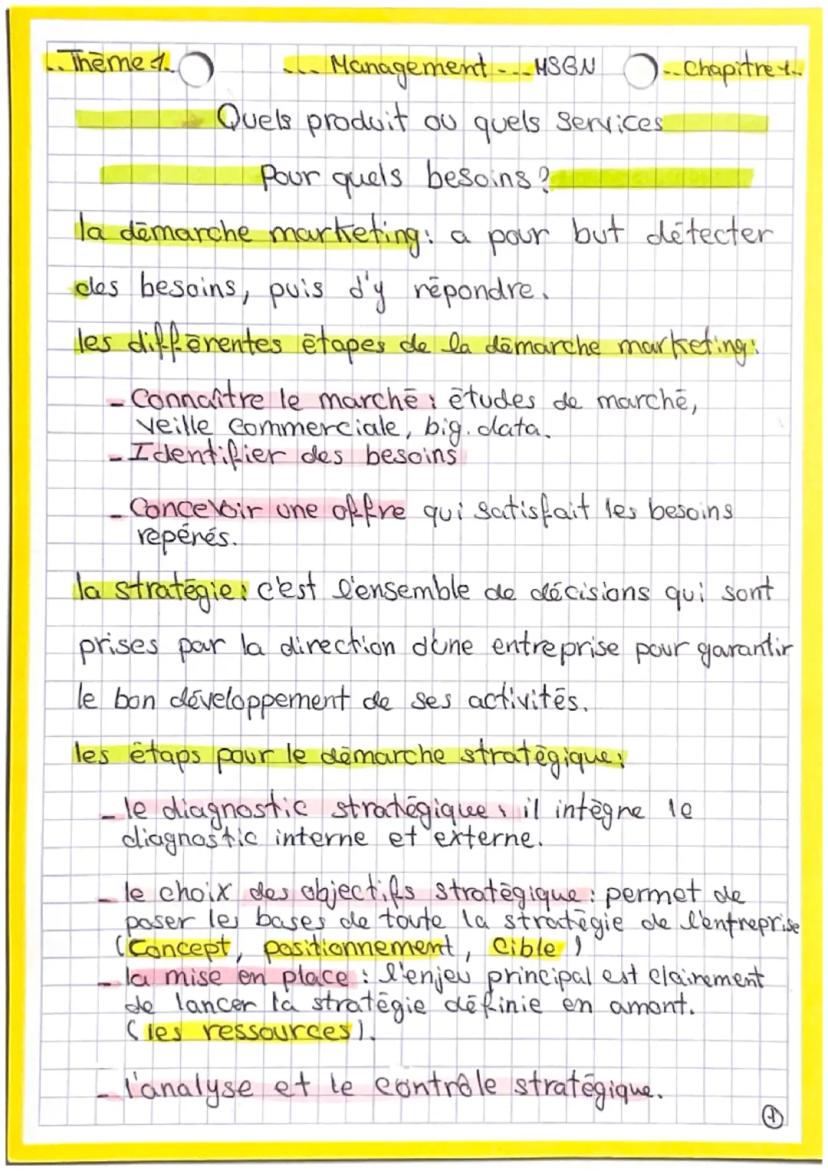 Thème 1. Management MSGN Chapitre 1
Quels produit ou quels services
Pour quels besoins?
la démarche marketing: a pour but détecter
des besoins, puis d'y répondre.
les différentes étapes de la démarche marketing:
- Connaître le marché: études de marché,
veille commerciale, big.data.
- Identifier des besoins
- Concevoir une offre qui satisfait les besoins
repérés.
la stratégie: c'est l'ensemble de décisions qui sont
prises par la direction d'une entreprise pour garantir
le bon développement de ses activités.
les étaps pour le démarche stratégique:
- le diagnostic stratégique: il intègre le
diagnostic interne et externe.
- le choix des objectifs stratégique: permet de
poser les bases de toute la stratégie de l'entreprise
(Concept, positionnement, Cible)
- la mise en place: l'enjeu principal est clairement
de lancer la stratégie définie en amont.
(les ressources).
- l'analyse et le contrôle stratégique.
1